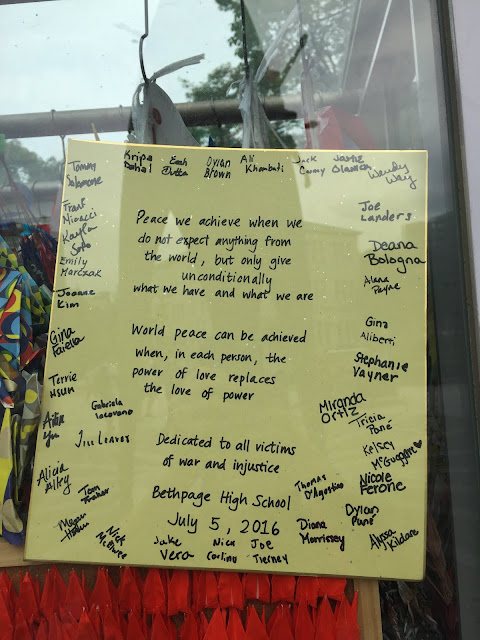 Kripa Dahal
Esah Dutta
Dylan Brown
Ali Khombati
Jack Carney
Jaime Olanica
Wendy Way
Tommy Salamone
Frank Miracci
Kayla Soto
Emily Marczak
Joanne Kim
Gina Faiella
Terrie Hsun
Yu
Gabriela Iacovano
Jill Leavey
Alicia Alfry
Tom
Megan
Nick McElwee
Peace we achieve when we
do not expect anything from
the world, but only give
unconditionally
what we have and what we are
World peace can be achieved
when, in each person, the
power of love replaces
the love of power
Dedicated to all victims
of war and injustice
Bethpage High School
July 5, 2016
Jake Vera
Nick Carlino
Joe Tierney
Joe Landers
Deana Bologna
Alana Payne
Gina Aliberti
Stephanie Vayner
Miranda Ortiz
Tricia Pané
Kelsey McGuggart
Nicole Ferone
Thomas D'Agostino
Dylan Pané
Diana Morrissey
Alyssa Kildare